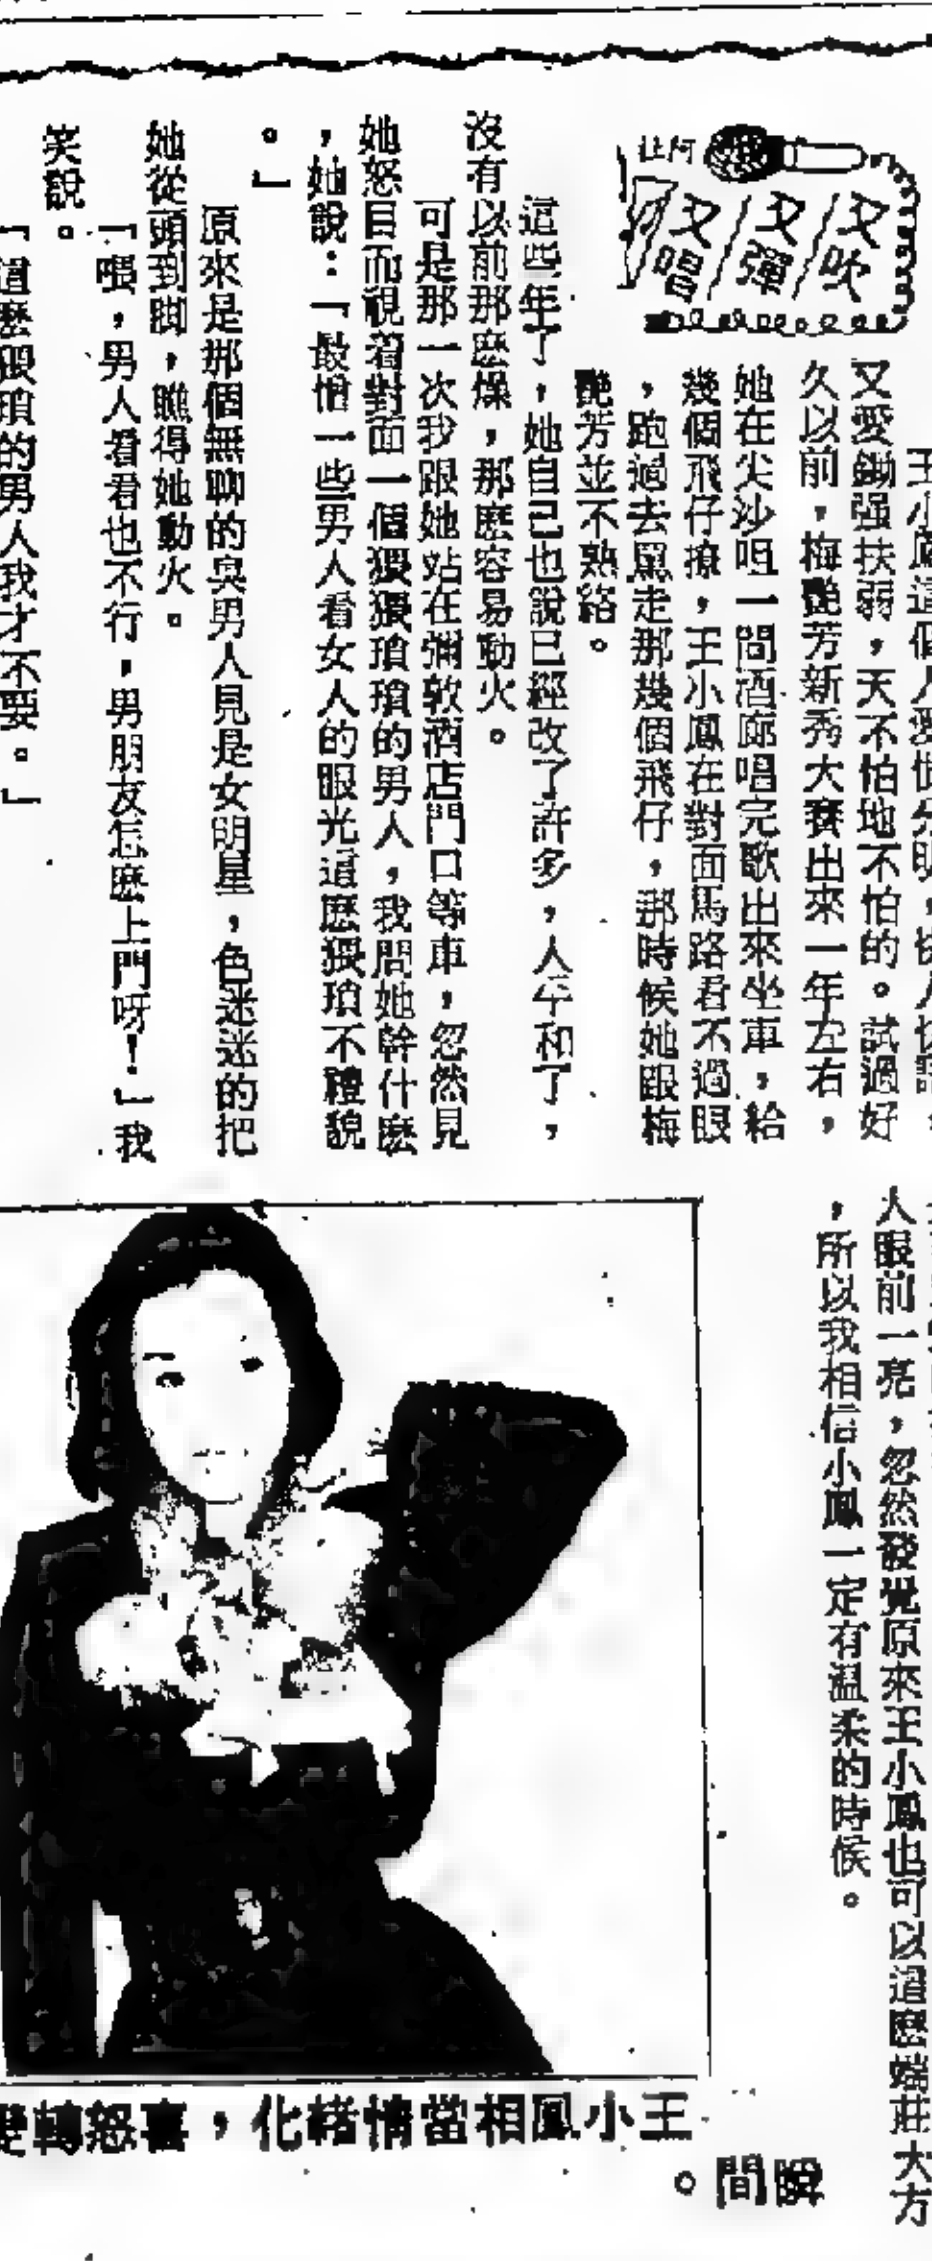 又吹
又彈
又唱
王小鳳這個人愛恨分明，
又愛鋤强扶弱，天不怕地不怕的。試過好
久以前，梅艷芳新秀大賽出來一年左右，
她在尖沙咀一間酒廊唱完歌出來坐車，給
幾個飛仔撩，王小鳳在對面馬路看不過眼
，跑過去罵走那幾個飛仔，那時候她跟梅
艷芳並不熟絡。
這些年了，她自己也說已經改了許多，人平和了，
沒有以前那麽燥，那麽容易動火。
可是那一次我跟她站在彌敦酒店門口等車，忽然見
她怒目而視着對面一個猥猥瑣瑣的男人，我問她幹什麽
，她說：「最憎一些男人看女人的眼光這麽猥瑣不禮貌
。」
原來是那個無聊的臭男人見是女明星，色迷迷的把
她從頭到脚，瞧得她動火。
「喂，男人看看也不行，男朋友怎麽上門呀！」我
笑說。
「這麽猥瑣的男人我才不要。」
人眼前一亮，忽然發覺原來王小鳳也可以這麽端莊大方
，所以我相信小鳳一定有温柔的時候。
王小鳳相當情緒化，喜怒轉變
瞬間。